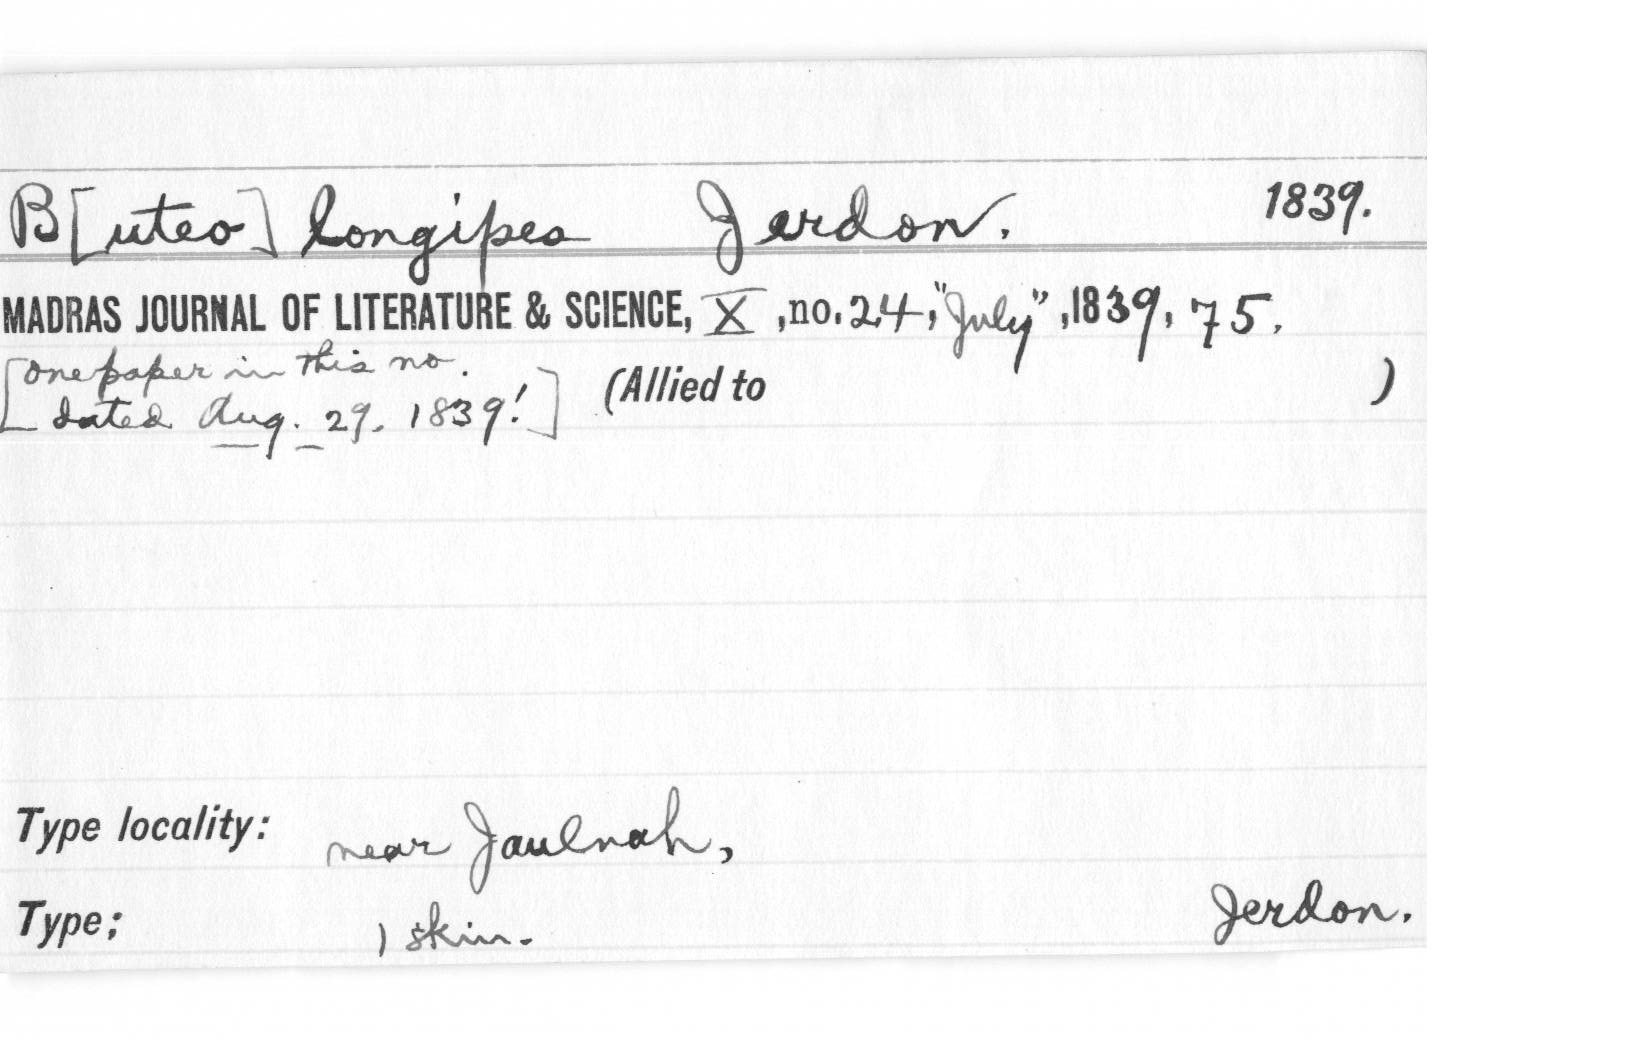 B[uteo] longipes Jerdon. 1839.
MADRAS JOURNAL OF LITERATURE & SCIENCE, X, no. 24, "July", 1839, 75.
[one paper in this no.
dated Aug. 29, 1839!] (Allied to )
Type locality: near Jaulnah,
Type; 1 skin. Jerdon.